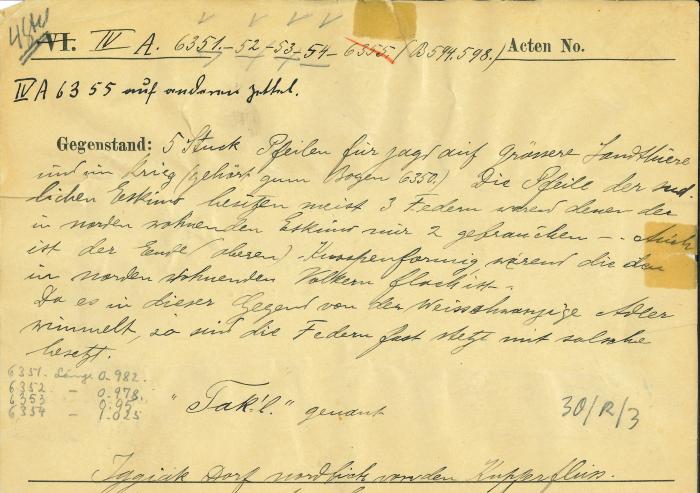 VI. IV A. 6351.-52-53-54-6355. (B 594.598.) Acten No.
IV A 6355 auf anderen zettel.
Gegenstand: 5 Stuck Pfeilen für jagd auf Grössere Landthiere
und im Krieg (gehört zum Bogen 6350.) Die Pfeile der süd-
lichen Eskimo besitzen meist 3 Federn wärend denen der
in norden wohnenden Eskimo nur 2 gebrauchen - . Auch
ist der Ende (oberen) Knospenformig wärend die den
in norden wohnenden Volkern flach ist -
Da es in dieser Gegend von der Weisschwanzige Adler
wimmelt, so sind die Federn fast stetz mit solche
besetzt.
6351. Länge 0.982.
6352 - 0.978.
6353 - 0.95
6354 - 1.025
"Tak!l." genant
30/R/3
Iggiak Dorf nordlich von den Kupperfluss.